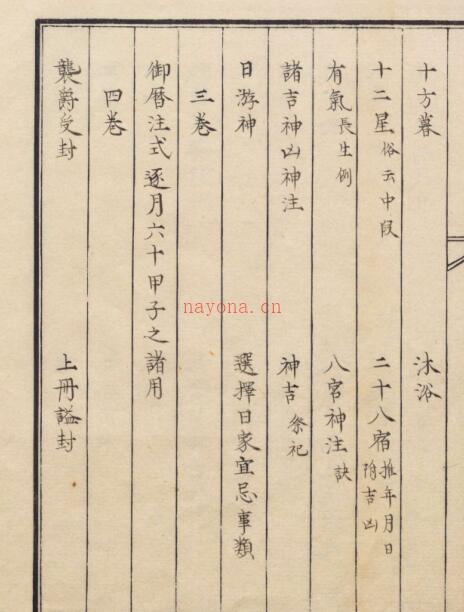 十方暮 沐浴
十二星 俗云中段 二十八宿 推年月日 附吉凶
有氣 長生例 八宮神注 訣
諸吉神凶神注 神吉 祭祀
日游神 選擇日家宜忌事類
三卷
御曆注式 逐月六十甲子之諸用
四卷
襲爵受封 上冊謚封
nayona.cn